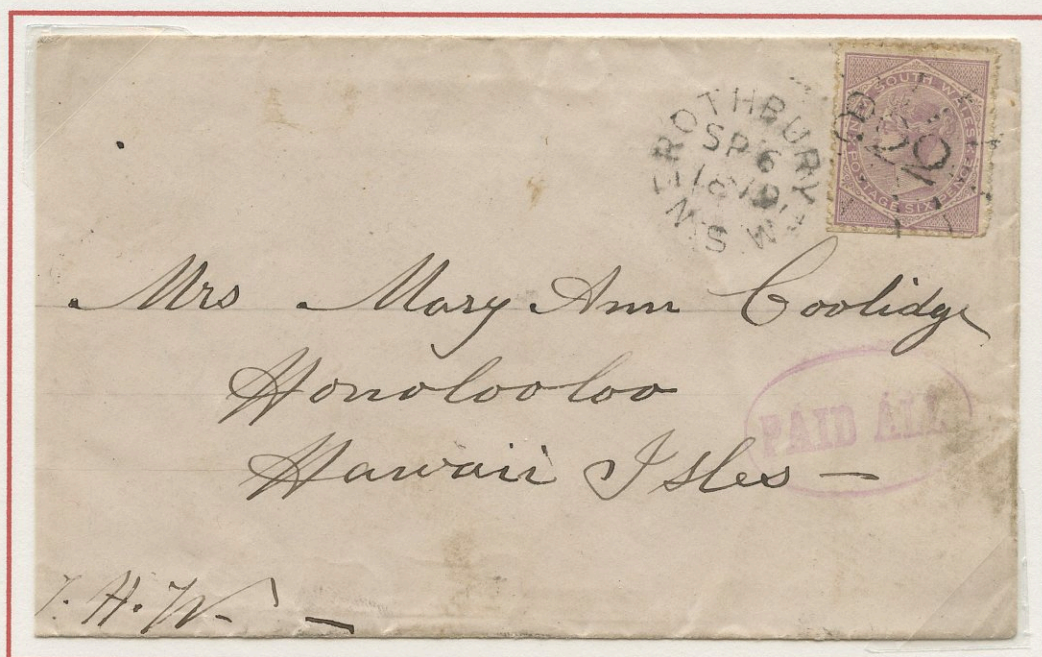 ROTHBURY
SP 6
N.S.W
NEW SOUTH WALES
POSTAGE SIX PENCE
Mrs Mary Ann Coolidge
Honolooloo
Hawaii Isles —
PAID ALL
H. W.